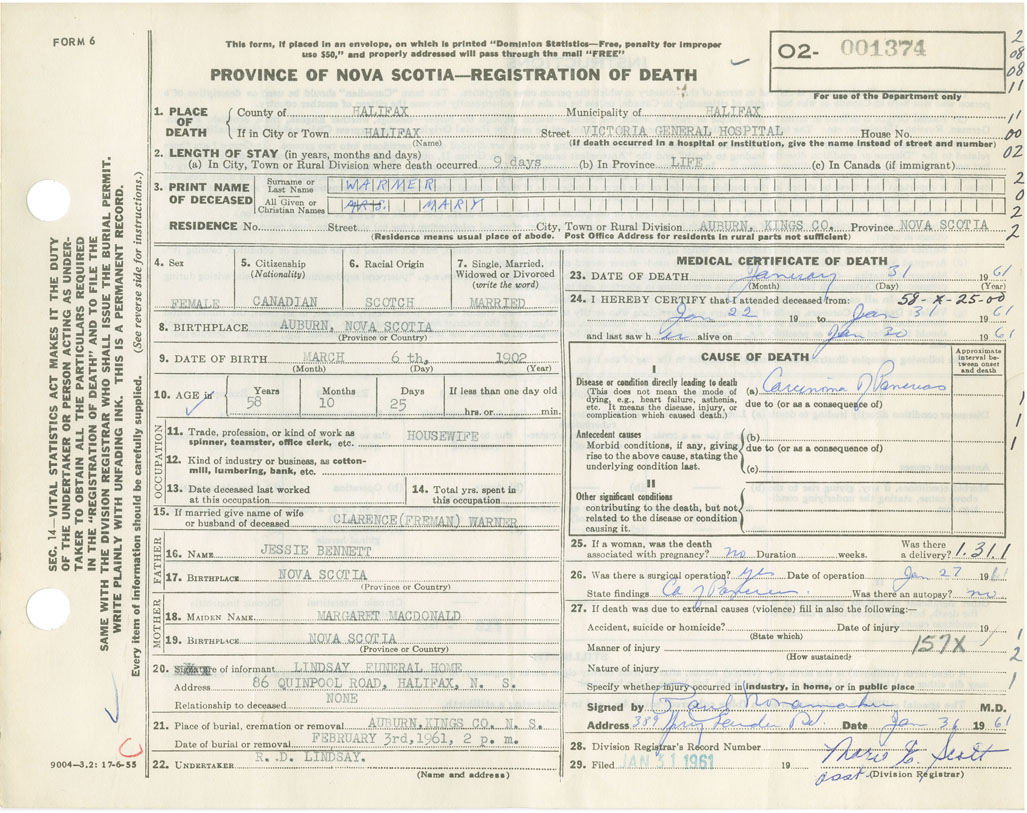 FORM 6
This form, if placed in an envelope, on which is printed "Dominion Statistics—Free, penalty for improper
use $50," and properly addressed will pass through the mail "FREE"
PROVINCE OF NOVA SCOTIA—REGISTRATION OF DEATH
O2- 001374
For use of the Department only
2
08
08
11
11
00
02
2
0
2
2
1. PLACE OF DEATH
County of HALIFAX Municipality of HALIFAX
If in City or Town HALIFAX Street VICTORIA GENERAL HOSPITAL House No.
(Name) (If death occurred in a hospital or institution, give the name instead of street and number)
2. LENGTH OF STAY (in years, months and days)
(a) In City, Town or Rural Division where death occurred 9 days (b) In Province LIFE (c) In Canada (if immigrant)
3. PRINT NAME OF DECEASED
Surname or Last Name WARNER
All Given or Christian Names MRS. MARY
RESIDENCE No. Street City, Town or Rural Division AUBURN, KINGS CO. Province NOVA SCOTIA
(Residence means usual place of abode. Post Office Address for residents in rural parts not sufficient)
4. Sex FEMALE
5. Citizenship (Nationality) CANADIAN
6. Racial Origin SCOTCH
7. Single, Married, Widowed or Divorced (write the word) MARRIED
8. BIRTHPLACE AUBURN, NOVA SCOTIA
(Province or Country)
9. DATE OF BIRTH MARCH 6 th, 1902
(Month) (Day) (Year)
10. AGE in Years Months Days If less than one day old
58 10 25 hrs. or min.
OCCUPATION
11. Trade, profession, or kind of work as spinner, teamster, office clerk, etc. HOUSEWIFE
12. Kind of industry or business, as cotton-
mill, lumbering, bank, etc.
13. Date deceased last worked at this occupation
14. Total yrs. spent in this occupation
15. If married give name of wife or husband of deceased CLARENCE(FREMAN) WARNER
FATHER
16. NAME JESSIE BENNETT
17. BIRTHPLACE NOVA SCOTIA
(Province or Country)
MOTHER
18. MAIDEN NAME MARGARET MACDONALD
19. BIRTHPLACE NOVA SCOTIA
(Province or Country)
20. Signature of informant LINDSAY FUNERAL HOME
Address 86 QUINPOOL ROAD, HALIFAX, N. S.
Relationship to deceased NONE
21. Place of burial, cremation or removal AUBURN,KINGS CO. N. S.
Date of burial or removal FEBRUARY 3rd,1961, 2 p. m.
22. UNDERTAKER R. D. LINDSAY.
(Name and address)
MEDICAL CERTIFICATE OF DEATH
23. DATE OF DEATH January 31 1961
(Month) (Day) (Year)
24. I HEREBY CERTIFY that I attended deceased from: 58-X-25-00
Jan 22 19 to Jan 31 1961
and last saw her alive on Jan 30 1961
CAUSE OF DEATH
Approximate interval between onset and death
I
Disease or condition directly leading to death
(This does not mean the mode of
dying, e.g., heart failure, asthenia,
etc. It means the disease, injury, or
complication which caused death.)
(a) Carcinoma of Pancreas
due to (or as a consequence of)
Antecedent causes
Morbid conditions, if any, giving
rise to the above cause, stating the
underlying condition last.
(b)
due to (or as a consequence of)
(c)
II
Other significant conditions
contributing to the death, but not
related to the disease or condition
causing it.
1
1
1
25. If a woman, was the death associated with pregnancy? no Duration weeks. Was there a delivery? 1.31.1
26. Was there a surgical operation? yes Date of operation Jan 27 1961
State findings Ca of Pancreas. Was there an autopsy? no
27. If death was due to external causes (violence) fill in also the following:—
Accident, suicide or homicide? Date of injury 19
(State which)
Manner of injury 157X
(How sustained)
Nature of injury
Specify whether injury occurred in industry, in home, or in public place
1
2
1
Signed by Paul M.D.
Address 389 Date Jan 31 1961
28. Division Registrar's Record Number
29. Filed JAN 31 1961 19 Marie E. Scott
asst (Division Registrar)
SEC. 14—VITAL STATISTICS ACT MAKES IT THE DUTY
OF THE UNDERTAKER OR PERSON ACTING AS UNDER-
TAKER TO OBTAIN ALL THE PARTICULARS REQUIRED
IN THE "REGISTRATION OF DEATH" AND TO FILE THE
SAME WITH THE DIVISION REGISTRAR WHO SHALL ISSUE THE BURIAL PERMIT.
WRITE PLAINLY WITH UNFADING INK. THIS IS A PERMANENT RECORD.
Every item of information should be carefully supplied. (See reverse side for instructions.)
C
9004—3.2: 17-6-55